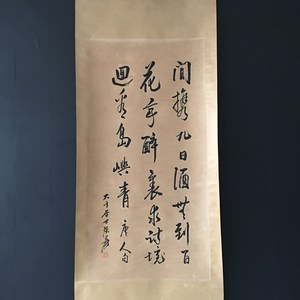 間攜九日酒共到百
花亭醉裏求詩境
迴看島嶼青 唐人句
大千居士張爰